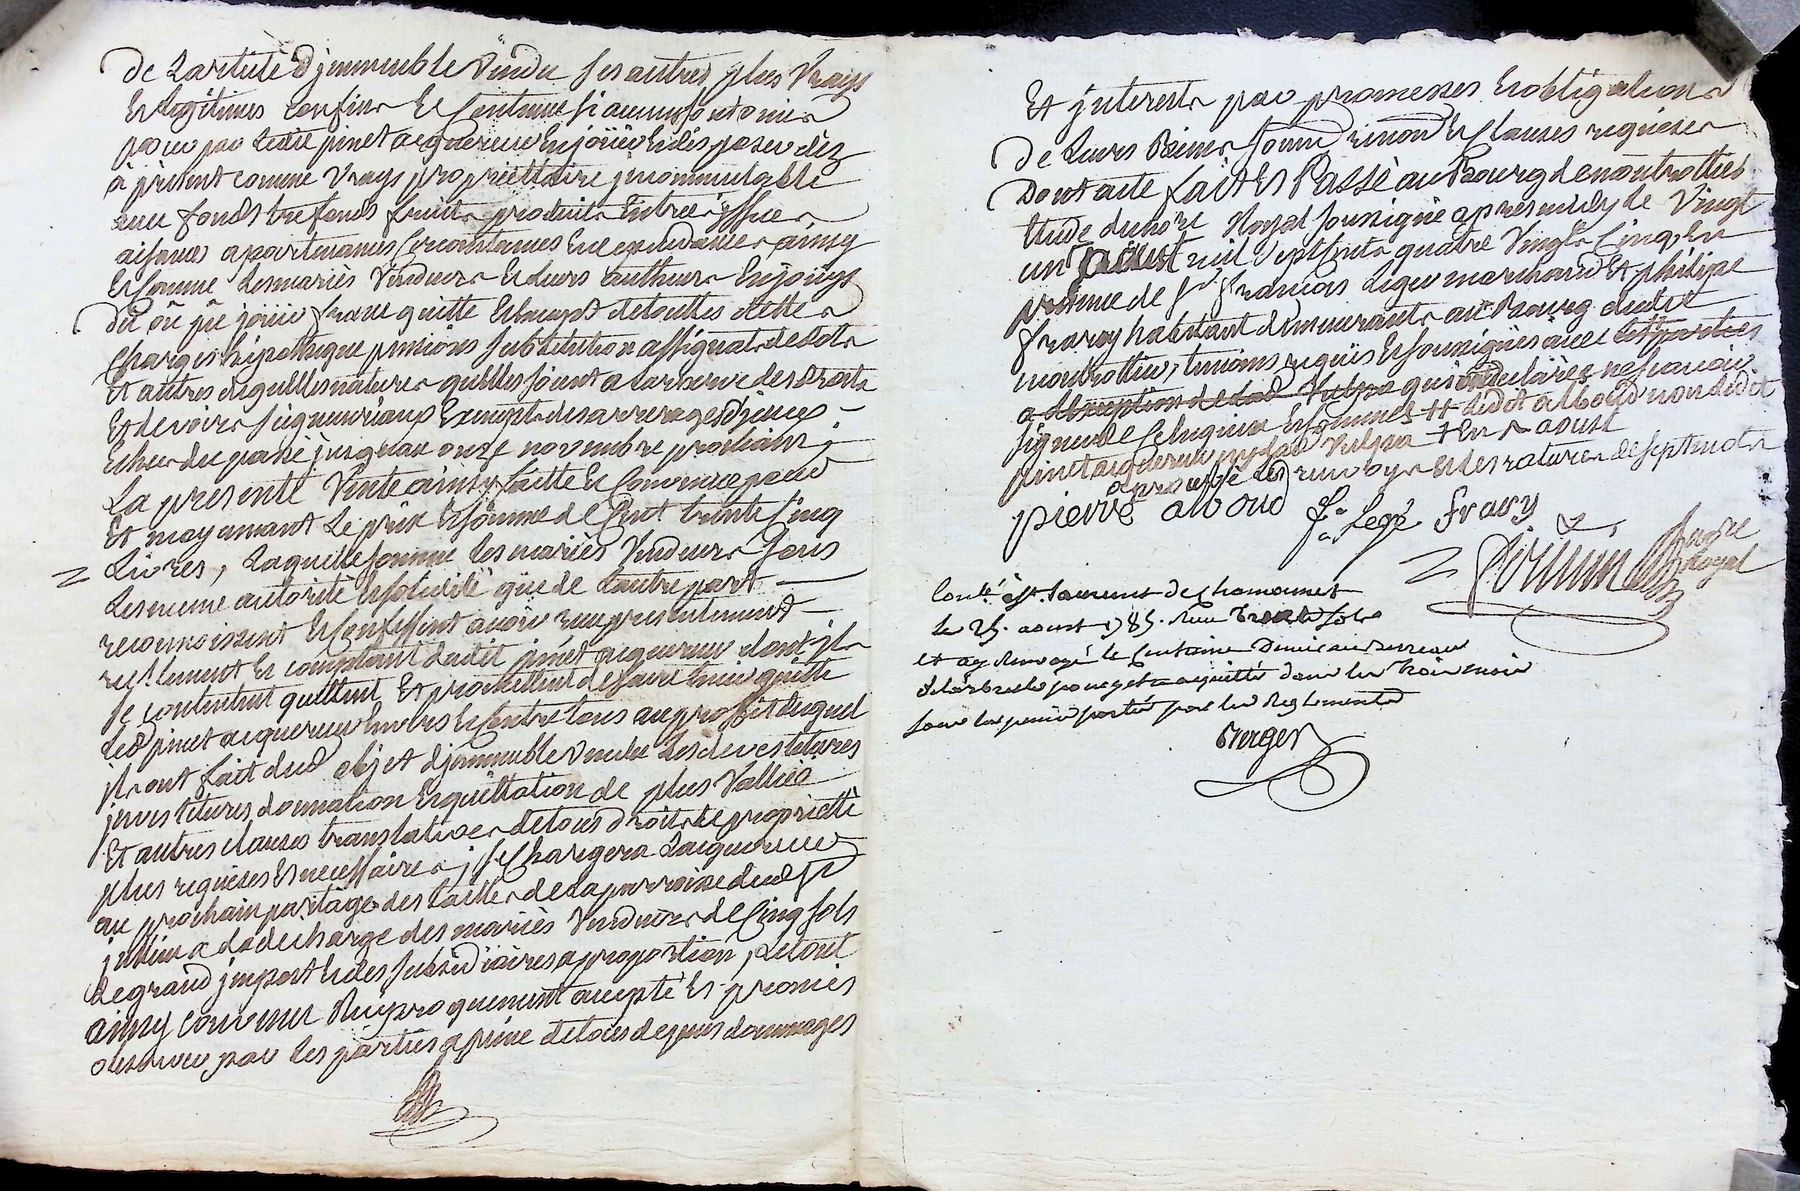 de Larticle d'jmmeuble Vendu ses autres plus Vrays
Et legitimes confins Et Contenue si aucuns sont omis
pour par ledit pinet acquereur En joüir En disposer dez
à present comme Vrays proprietaire jncommutable
aux fonds trefonds fruits produits Entrées jssües
aisances apartenances Circonstances Et dependances ainsy
Et Comme Lesmariés Vendeurs Et Leurs autheurs En joüys
dû oû pû joüir franc quitte Et Exempt de touttes dettes
Charges hipotheque pensions substitution assignats de dots
Et autres de quelles natures quelles soient a la reserve des Droits
Et devoirs seigneuriaux Exempts des arrerages d'jceux
Echus du passé jusqu'au onze novembre prochain ;
La presente Vente ainsy faitte Et Convenue pour
Et moyannant Le prix Et somme de Cent trente Cinq
Livres, Laquelle somme Les mariés Vendeurs sous
Lesmeme autorité Et solidité que de Lautre part
reconnoissent Et Confessent avoir reçu presentement
reellement Et comptant dudit pinet acquereur dont jls
se contentent quittent Et promettent de faire tenir quitte
Led pinet acquereur Envers Et Contre tous au proffit duquel
jls ont fait dud objet djmmeuble Vendu Les devestitures
jnvestitures donnation Et quittation de plus Vallüe
Et autres clauses translatives de tous droits de proprieté
plus requises Et necessaires ; se Chargera Lacquereur
au prochain partage des tailles de La parroisse dud St
jullien a La decharge des mariés Vendeurs de Cinq sols
de grand jmpost Et des subsidiaires a proportion, Le tout
ainsy convenu Reciproquement accepté Et promis
observer par Les parties a peine de tous depens dommages
Et jnterests par promesses Et obligations
de Leurs Biens soum renon Et Clauses requises
Dont acte fait Et Passé au Bourg de montrottier
Etude du no.re Royal soussigné apres midy le Vingt
un aoust mil Sept Cents quatre Vingts Cinq, En
presence de Sr François Leger marchand Et philipe
fraray habitant demeurants au Bourg dudit
montrottier, temoins requis Et soussignés avec Les parties
a Lexception de lad Vulpas qui ont declaré ne sçavoir
signer de Ce Enquise Et sommés ++ Ledit aLboud non Ledit
pinet acquereur ny lad Vulpas + En + aoust
aprouvé Les renvoys Et Les ratures de sept mots
pierre alboud
f.s Legé
frary
no.re
Royal
Con.lé à St. Laurent de Chamousset
le 25. aoust 1785. Reçu trente sols
et ay renvoyé le Centieme Denier au Bureau
de Larbresle pour y etre acquitté dans les trois mois
sous les peines portées par les Reglements
Berger